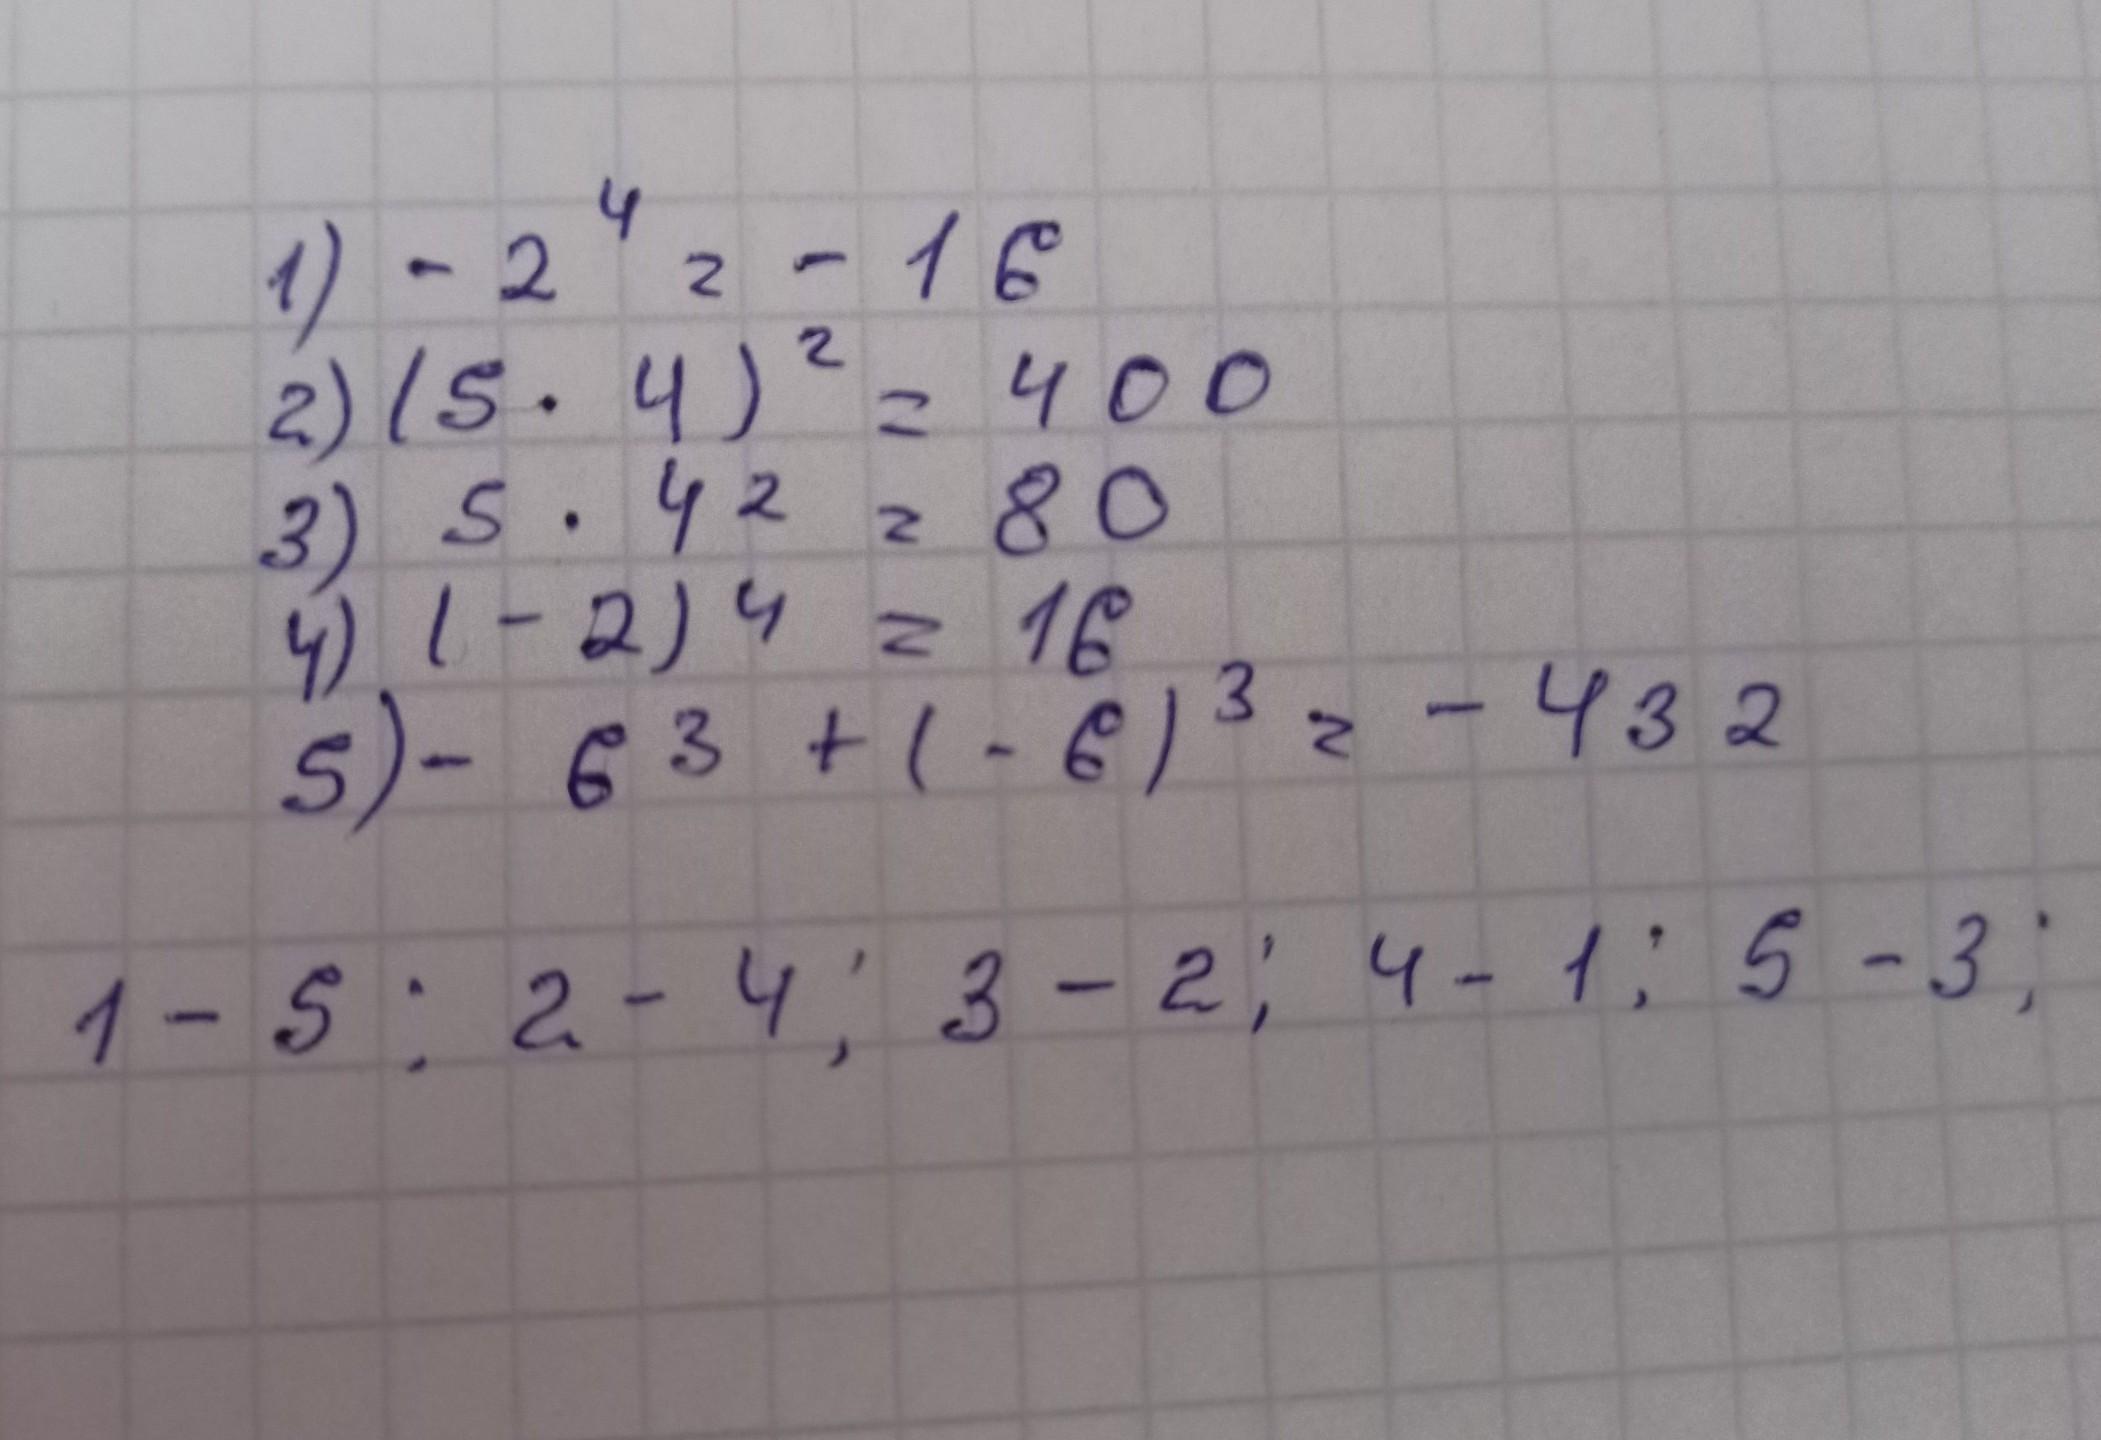 1) - 2⁴ = - 16
2) (5 · 4)² = 400
3) 5 · 4² = 80
4) (- 2)⁴ = 16
5) - 6³ + (- 6)³ = - 432
1 - 5; 2 - 4; 3 - 2; 4 - 1; 5 - 3;